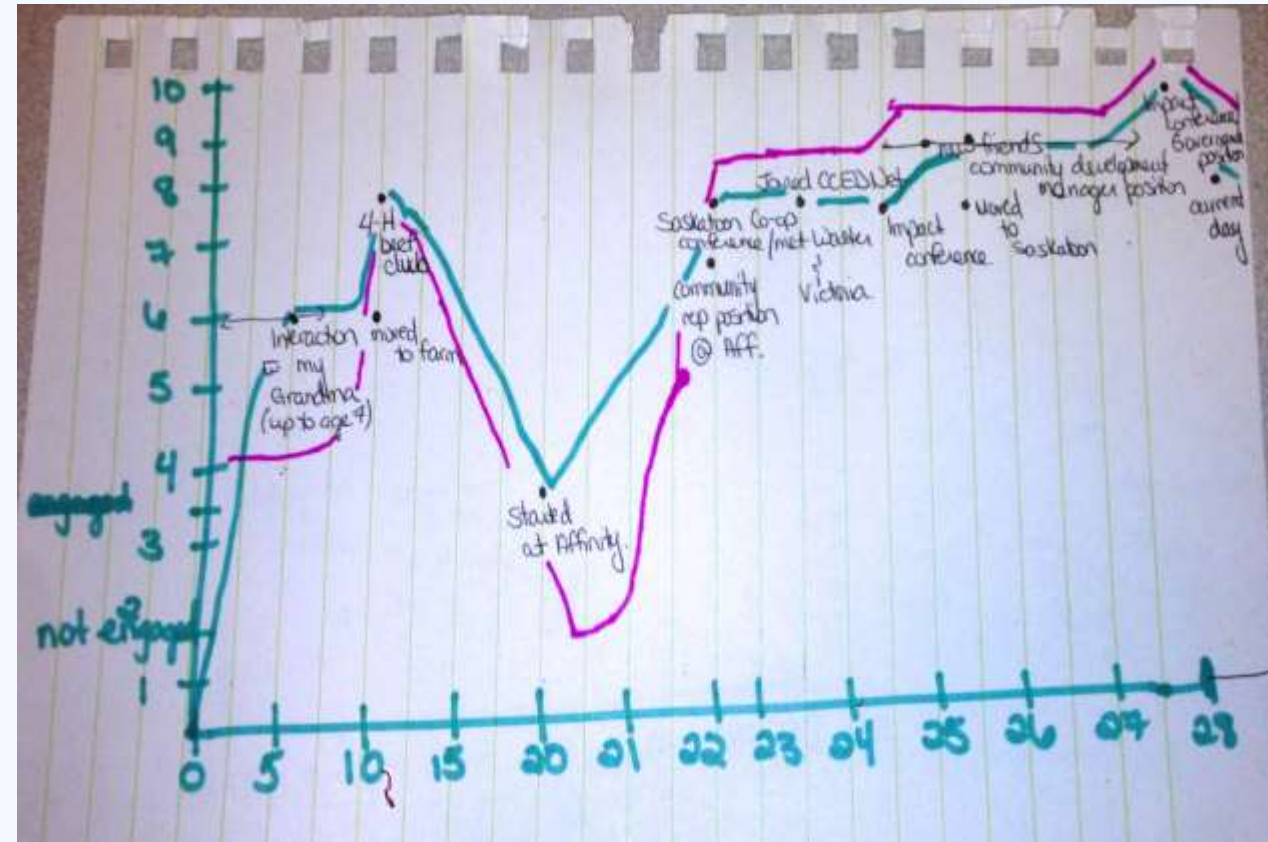 10
9
8
7
6
5
4
engaged
3
2
not engaged
1
0 5 10 15 20 21 22 23 24 25 26 27 28
Interaction
my
Grandma
4-H
beef
club
moved
to farm
Started
at Affinity.
Saskatoon Co-op
conference/met Walter
&
Victoria
community
rep position
@ Aff.
Joined CCEDNet
Impact
conference
friends
community development
manager position
Moved
to
Saskatoon
Impact
conference
Government
position
current
day